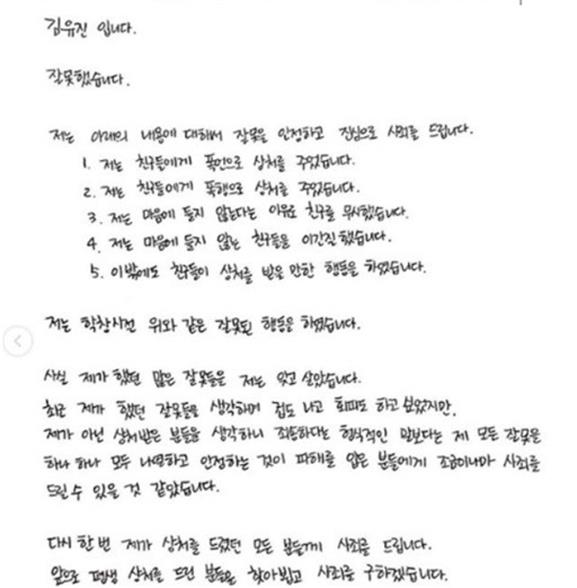 김유진 입니다.
잘못했습니다.
저는 아래의 내용에 대해서 잘못을 인정하고 진심으로 사죄를 드립니다.
1. 저는 친구들에게 폭언으로 상처를 주었습니다.
2. 저는 친구들에게 폭행으로 상처를 주었습니다.
3. 저는 마음에 들지 않는다는 이유로 친구를 무시했습니다.
4. 저는 마음에 들지 않는 친구들을 이간질했습니다.
5. 이밖에도 친구들이 상처를 받을 만한 행동을 하였습니다.
저는 학창시절 위와 같은 잘못된 행동을 하였습니다.
사실 제가 했던 많은 잘못들은 저는 잊고 살았습니다.
최근 제가 했던 잘못들을 생각하며 겁도 나고 회피도 하고 싶었지만,
제가 아닌 상처받은 분들을 생각하니 죄송하다는 형식적인 말보다는 제 모든 잘못을
하나 하나 모두 나열하고 인정하는 것이 피해를 입은 분들에게 조금이나마 사죄를
드릴 수 있을 것 같았습니다.
다시 한 번 제가 상처를 드렸던 모든 분들께 사죄를 드립니다.
앞으로 평생 상처를 드린 분들을 찾아뵙고 사죄를 구하겠습니다.